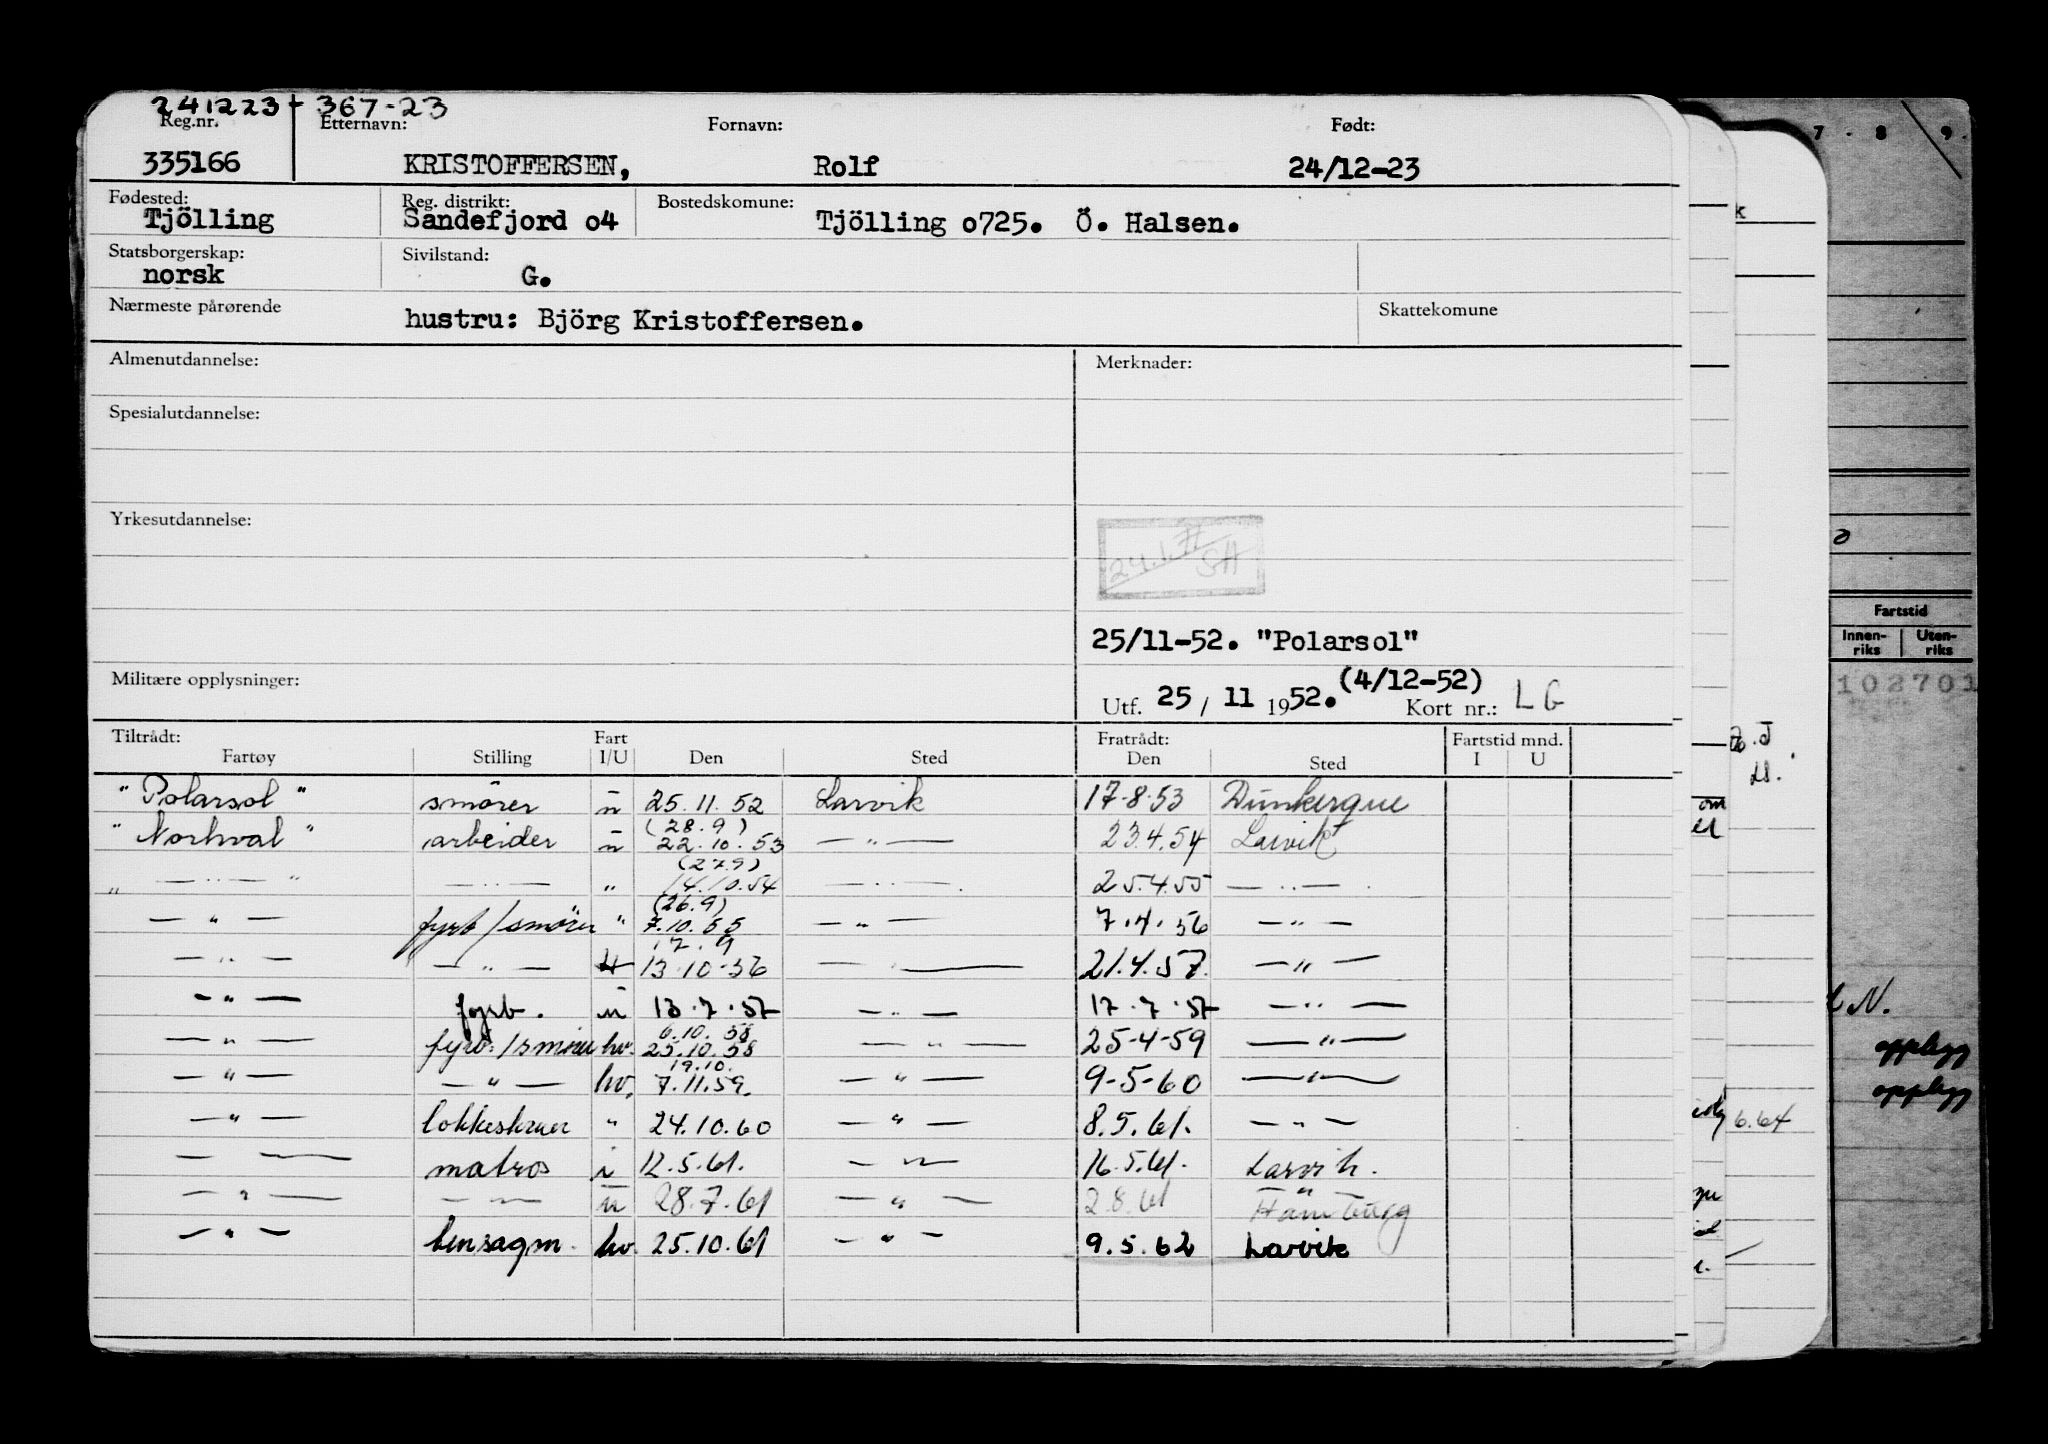 241223 - 367-23
Reg.nr. Etternavn: Fornavn: Født:
335166 KRISTOFFERSEN, Rolf 24/12-23
Fødested: Reg. distrikt: Bostedskomune:
Tjölling Sandefjord o4 Tjölling o725. Ö. Halsen.
Statsborgerskap: Sivilstand:
norsk G.
Nærmeste pårørende Skattekomune
hustru: Björg Kristoffersen.
Almenutdannelse: Merknader:
Spesialutdannelse:
Yrkesutdannelse:
24.1.77 SH
25/11-52. "Polarsol"
Militære opplysninger: (4/12-52)
Utf. 25 / 11 1952. Kort nr.: LG
Tiltrådt: Fart Fratrådt: Fartstid mnd.
Fartøy Stilling I/U Den Sted Den Sted I U
"Polarsol" smörer u 25.11.52 Larvik 17-8-53 Dunkerque
(28.9)
"Norhval" arbeider u 22.10.53 — " — 23.4.54 Larvik
(27.9)
" — " — " — " — " 14.10.54 — " — 25.4.55 — " —
(26.9)
— " — fyrb/smörer " 7.10.55 — " — 7.4.56 — " —
17.9
— " — — " — 13-10-56 — " — 21.4.57. — " —
— " — fyrb. u 13.7.57 — " — 17.7.57 — " —
6.10.58
— " — fyrb./smörer hv. 25.10.58 — " — 25-4-59 — " —
19.10.
— " — — " — hv. 7.11.59. — " — 9-5-60 — " —
— " — lokkeskruer " 24.10.60 — " — 8.5.61. — " —
— " — matros i 12.5.61. — " — 16.5.61. Larvik.
— " — — " — u 28.7.61 — " — 2.8.61 Hamburg
— " — bensagm. hv. 25.10.61 — " — 9.5.62 Larvik
7 - 8 9.
k
Fartstid
Innen-riks Uten-riks
102701
om
N.
opplegg
opplegg
6.64